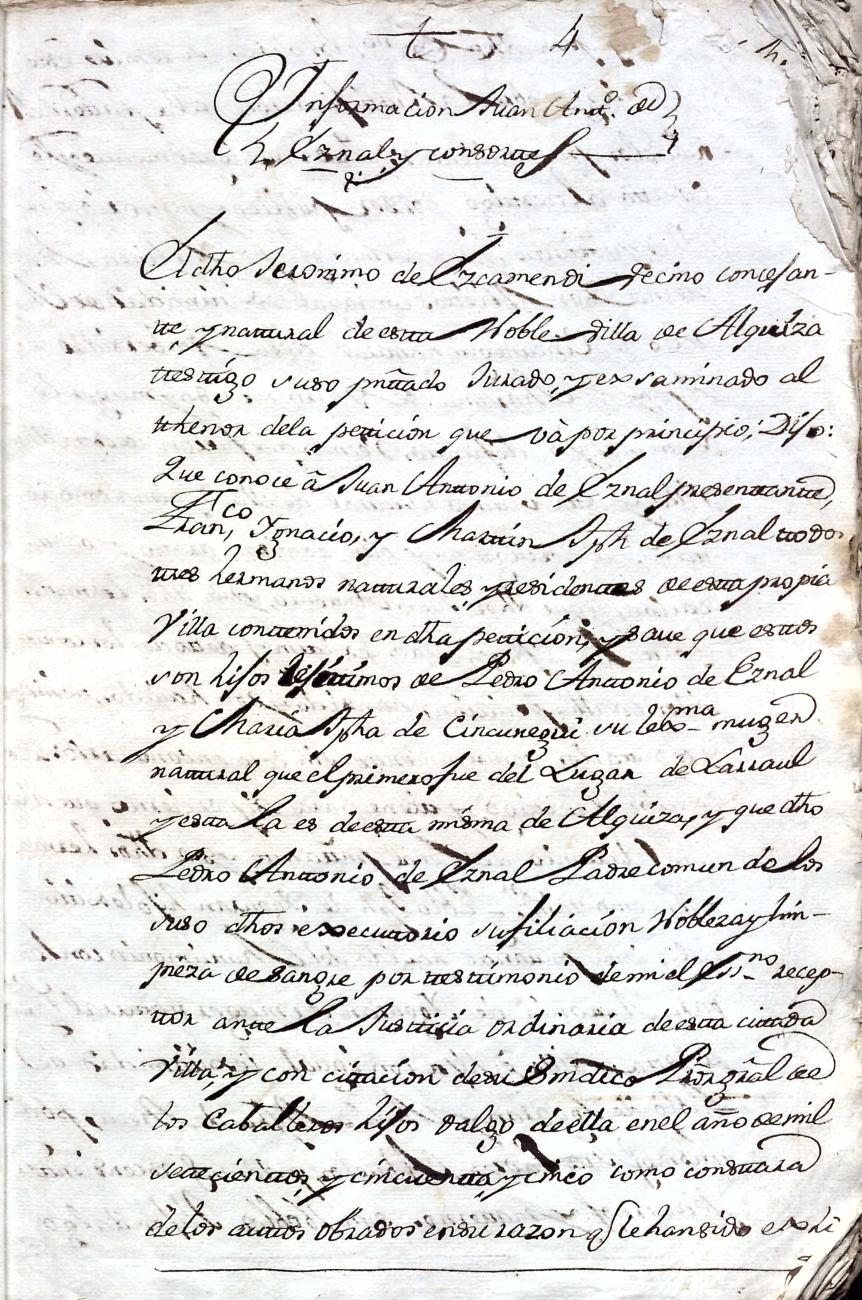 t 4
Informacion Juan Antto. de
Eznal, y consortes
El dho Jeronimo de Ezcamendi vecino concejan-
tte, y natural de esta Noble villa de Alquiza
testigo suso prentado Jurado, y exsaminado al
thenor dela peticion que và por principio; Dijo:
Que conoce â Juan Anttonio de Eznal presentante,
Franco, Ygnacio, y Martin Jph de Eznal ttodos
tres hermanos natturales y residentes de esta propia
Villa conttenidos en dha petticion, y save que estos
son hijos lejitimos de Pedro Anttonio de Eznal
y Maria Jpha de Cincunegui su lexma muger
nattural que el primero fue del Lugar de Larraul
y estta la es de esta misma de Alquiza, y que dho
Pedro Anttonio de Eznal Padre comun de los
suso dhos executtorio su filiacion Nobleza y lim-
pieza de sangre por testtimonio de mi el Essno recep-
ttor ante la Justicia ordinaria de esta cittada
Villa, y con citacion de su Sindico Pror gral de
los Caballeros hijos dalgo de ella en el año de mil
settecientos, y cincuentta, y cinco como constara
de los auttos obrados en su razon q le han sido exhi